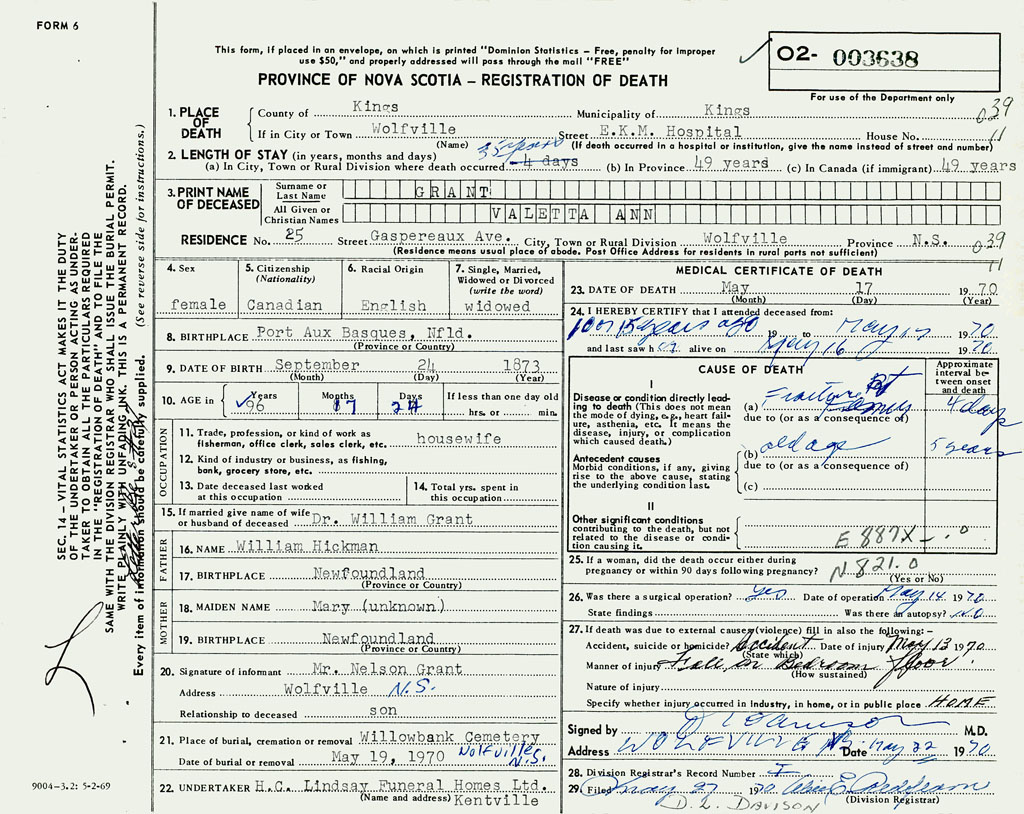 FORM 6
This form, if placed in an envelope, on which is printed "Dominion Statistics – Free, penalty for improper
use $50," and properly addressed will pass through the mail "FREE"
PROVINCE OF NOVA SCOTIA – REGISTRATION OF DEATH
O2- 003638
For use of the Department only
1. PLACE OF DEATH
County of Kings Municipality of Kings 039
If in City or Town Wolfville Street E.K.M. Hospital House No. 11
(Name) (If death occurred in a hospital or institution, give the name instead of street and number)
2. LENGTH OF STAY (in years, months and days) 35 years
(a) In City, Town or Rural Division where death occurred 4 days (b) In Province 49 years (c) In Canada (if immigrant) 49 years
3. PRINT NAME OF DECEASED
Surname or Last Name GRANT
All Given or Christian Names VALETTA ANN
RESIDENCE No. 25 Street Gaspereaux Ave. City, Town or Rural Division Wolfville Province N.S. 039
(Residence means usual place of abode. Post Office Address for residents in rural parts not sufficient) 11
4. Sex
female
5. Citizenship (Nationality)
Canadian
6. Racial Origin
English
7. Single, Married, Widowed or Divorced (write the word)
widowed
8. BIRTHPLACE Port Aux Basques, Nfld.
(Province or Country)
9. DATE OF BIRTH September 24 1873
(Month) (Day) (Year)
10. AGE in Years 96 Months Days 24 If less than one day old hrs. or min.
OCCUPATION
11. Trade, profession, or kind of work as fisherman, office clerk, sales clerk, etc. housewife
12. Kind of industry or business, as fishing, bank, grocery store, etc.
13. Date deceased last worked at this occupation
14. Total yrs. spent in this occupation
15. If married give name of wife or husband of deceased Dr. William Grant
FATHER
16. NAME William Hickman
17. BIRTHPLACE Newfoundland
(Province or Country)
MOTHER
18. MAIDEN NAME Mary (unknown)
19. BIRTHPLACE Newfoundland
(Province or Country)
20. Signature of informant Mr. Nelson Grant
Address Wolfville N.S.
Relationship to deceased son
21. Place of burial, cremation or removal Willowbank Cemetery
Date of burial or removal May 19, 1970 Wolfville N.S.
22. UNDERTAKER H.C. Lindsay Funeral Homes Ltd.
(Name and address) Kentville
MEDICAL CERTIFICATE OF DEATH
23. DATE OF DEATH May 17 1970
(Month) (Day) (Year)
24. I HEREBY CERTIFY that I attended deceased from:
10 or 15 years ago 19 to May 17 1970
and last saw her alive on May 16 1970
CAUSE OF DEATH
Approximate interval between onset and death
I
Disease or condition directly leading to death (This does not mean the mode of dying, e.g., heart failure, asthenia, etc. It means the disease, injury, or complication which caused death.)
(a) Fracture Rt Femur 4 days
due to (or as a consequence of)
Antecedent causes
Morbid conditions, if any, giving rise to the above cause, stating the underlying condition last.
(b) old age 5 years
due to (or as a consequence of)
(c)
II
Other significant conditions contributing to the death, but not related to the disease or condition causing it.
E 887X - .0
25. If a woman, did the death occur either during pregnancy or within 90 days following pregnancy? N 821.0
(Yes or No)
26. Was there a surgical operation? yes Date of operation May 14 1970
State findings Was there an autopsy? No
27. If death was due to external causes (violence) fill in also the following: –
Accident, suicide or homicide? Accident Date of injury May 13 1970
(State which)
Manner of injury Fall on Bedroom floor
(How sustained)
Nature of injury
Specify whether injury occurred in Industry, in home, or in public place HOME
Signed by M.D.
Address WOLFVILLE NS Date May 22 1970
28. Division Registrar's Record Number
29. Filed May 27 1970
(Division Registrar)
D. L. DAVISON
SEC. 14 – VITAL STATISTICS ACT MAKES IT THE DUTY
OF THE UNDERTAKER OR PERSON ACTING AS UNDER-
TAKER TO OBTAIN ALL THE PARTICULARS REQUIRED
IN THE "REGISTRATION OF DEATH" AND TO FILE THE
SAME WITH THE DIVISION REGISTRAR WHO SHALL ISSUE THE BURIAL PERMIT.
WRITE PLAINLY WITH UNFADING INK. THIS IS A PERMANENT RECORD.
Every item of information should be carefully supplied. (See reverse side for instructions.)
9004–3.2: 5-2-69